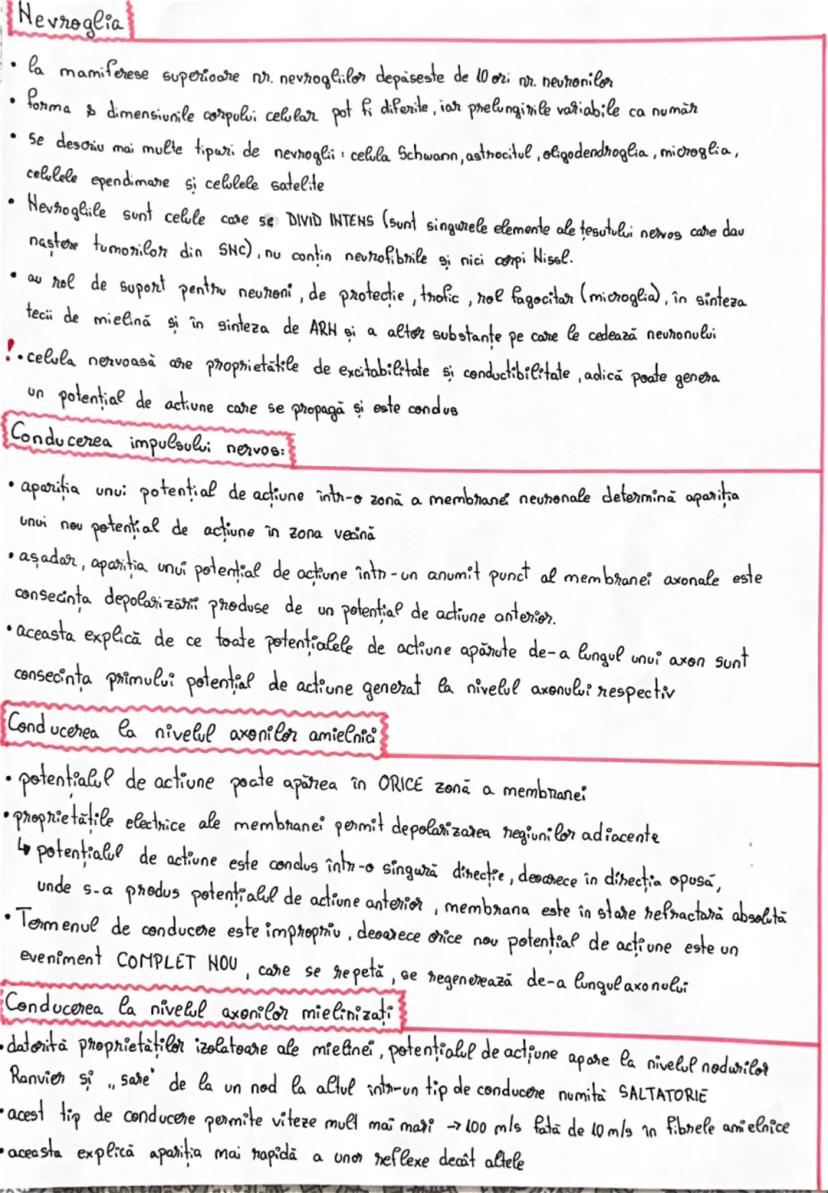 Nevroglia
• la mamiferele superioare nr. nevrogliilor depășește de 10 ori nr. neuronilor
• forma și dimensiunile corpului celular pot fi diferite, iar prelungirile variabile ca număr
• se descriu mai multe tipuri de nevroglii: celula Schwann, astrocitul, oligodendroglia, microglia,
celulele ependimare și celulele satelite
• Nevrogliile sunt celule care se DIVID INTENS (sunt singurele elemente ale țesutului nervos care dau
naștere tumorilor din SNC), nu conțin neurofibrile și nici corpi Nissl.
• au rol de suport pentru neuroni, de protecție, trofic, rol fagocitar (microglia), în sinteza
tecii de mielină și în sinteza de ARN și a altor substanțe pe care le cedează neuronului
! • celula nervoasă are proprietățile de excitabilitate și conductibilitate, adică poate genera
un potențial de actiune care se propagă și este condus
Conducerea impulsului nervos:
• apariția unui potențial de acțiune într-o zonă a membranei neuronale determină apariția
unui nou potențial de acțiune în zona vecină
• așadar, apariția unui potențial de acțiune într-un anumit punct al membranei axonale este
consecința depolarizării produse de un potențial de actiune anterior.
• aceasta explică de ce toate potențialele de actiune apărute de-a lungul unui axon sunt
consecința primului potențial de actiune generat la nivelul axonului respectiv
Conducerea la nivelul axonilor amielnici
• potențialul de actiune poate apărea în ORICE zonă a membranei
• proprietățile electrice ale membranei permit depolarizarea regiunilor adiacente
↳ potențialul de actiune este condus într-o singură direcție, deoarece în direcția opusă,
unde s-a produs potențialul de actiune anterior, membrana este în stare refractară absolută
• Termenul de conducere este impropriu, deoarece orice nou potențial de acțiune este un
eveniment COMPLET NOU, care se repetă, se regenerează de-a lungul axonului
Conducerea la nivelul axonilor mielinizați
• datorită proprietăților izolatoare ale mielinei, potențialul de acțiune apare la nivelul nodurilor
Ranvier și „sare" de la un nod la altul într-un tip de conducere numită SALTATORIE
• acest tip de conducere permite viteze mult mai mari → 100 m/s față de 10 m/s în fibrele amielnice
• aceasta explică apariția mai rapidă a unor reflexe decât altele